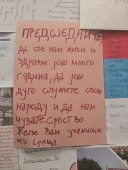 ПРЕДСЈЕДНИЧЕ
да сте нам живи и
здрави још много
година, да још
дуго служите свом
народу и да нам
чувате Српство.
Желе вам ученици
из Српца